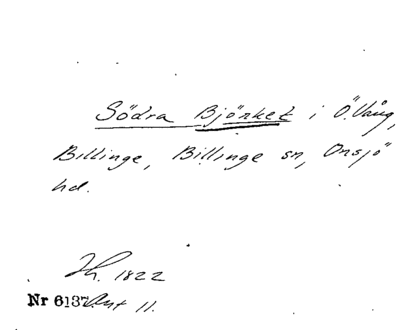 Södra Bjönket i Ö. Vång,
Billinge, Billinge sn, Onsjö
hd.
Th. 1822
Nr 6137 Akt 11.